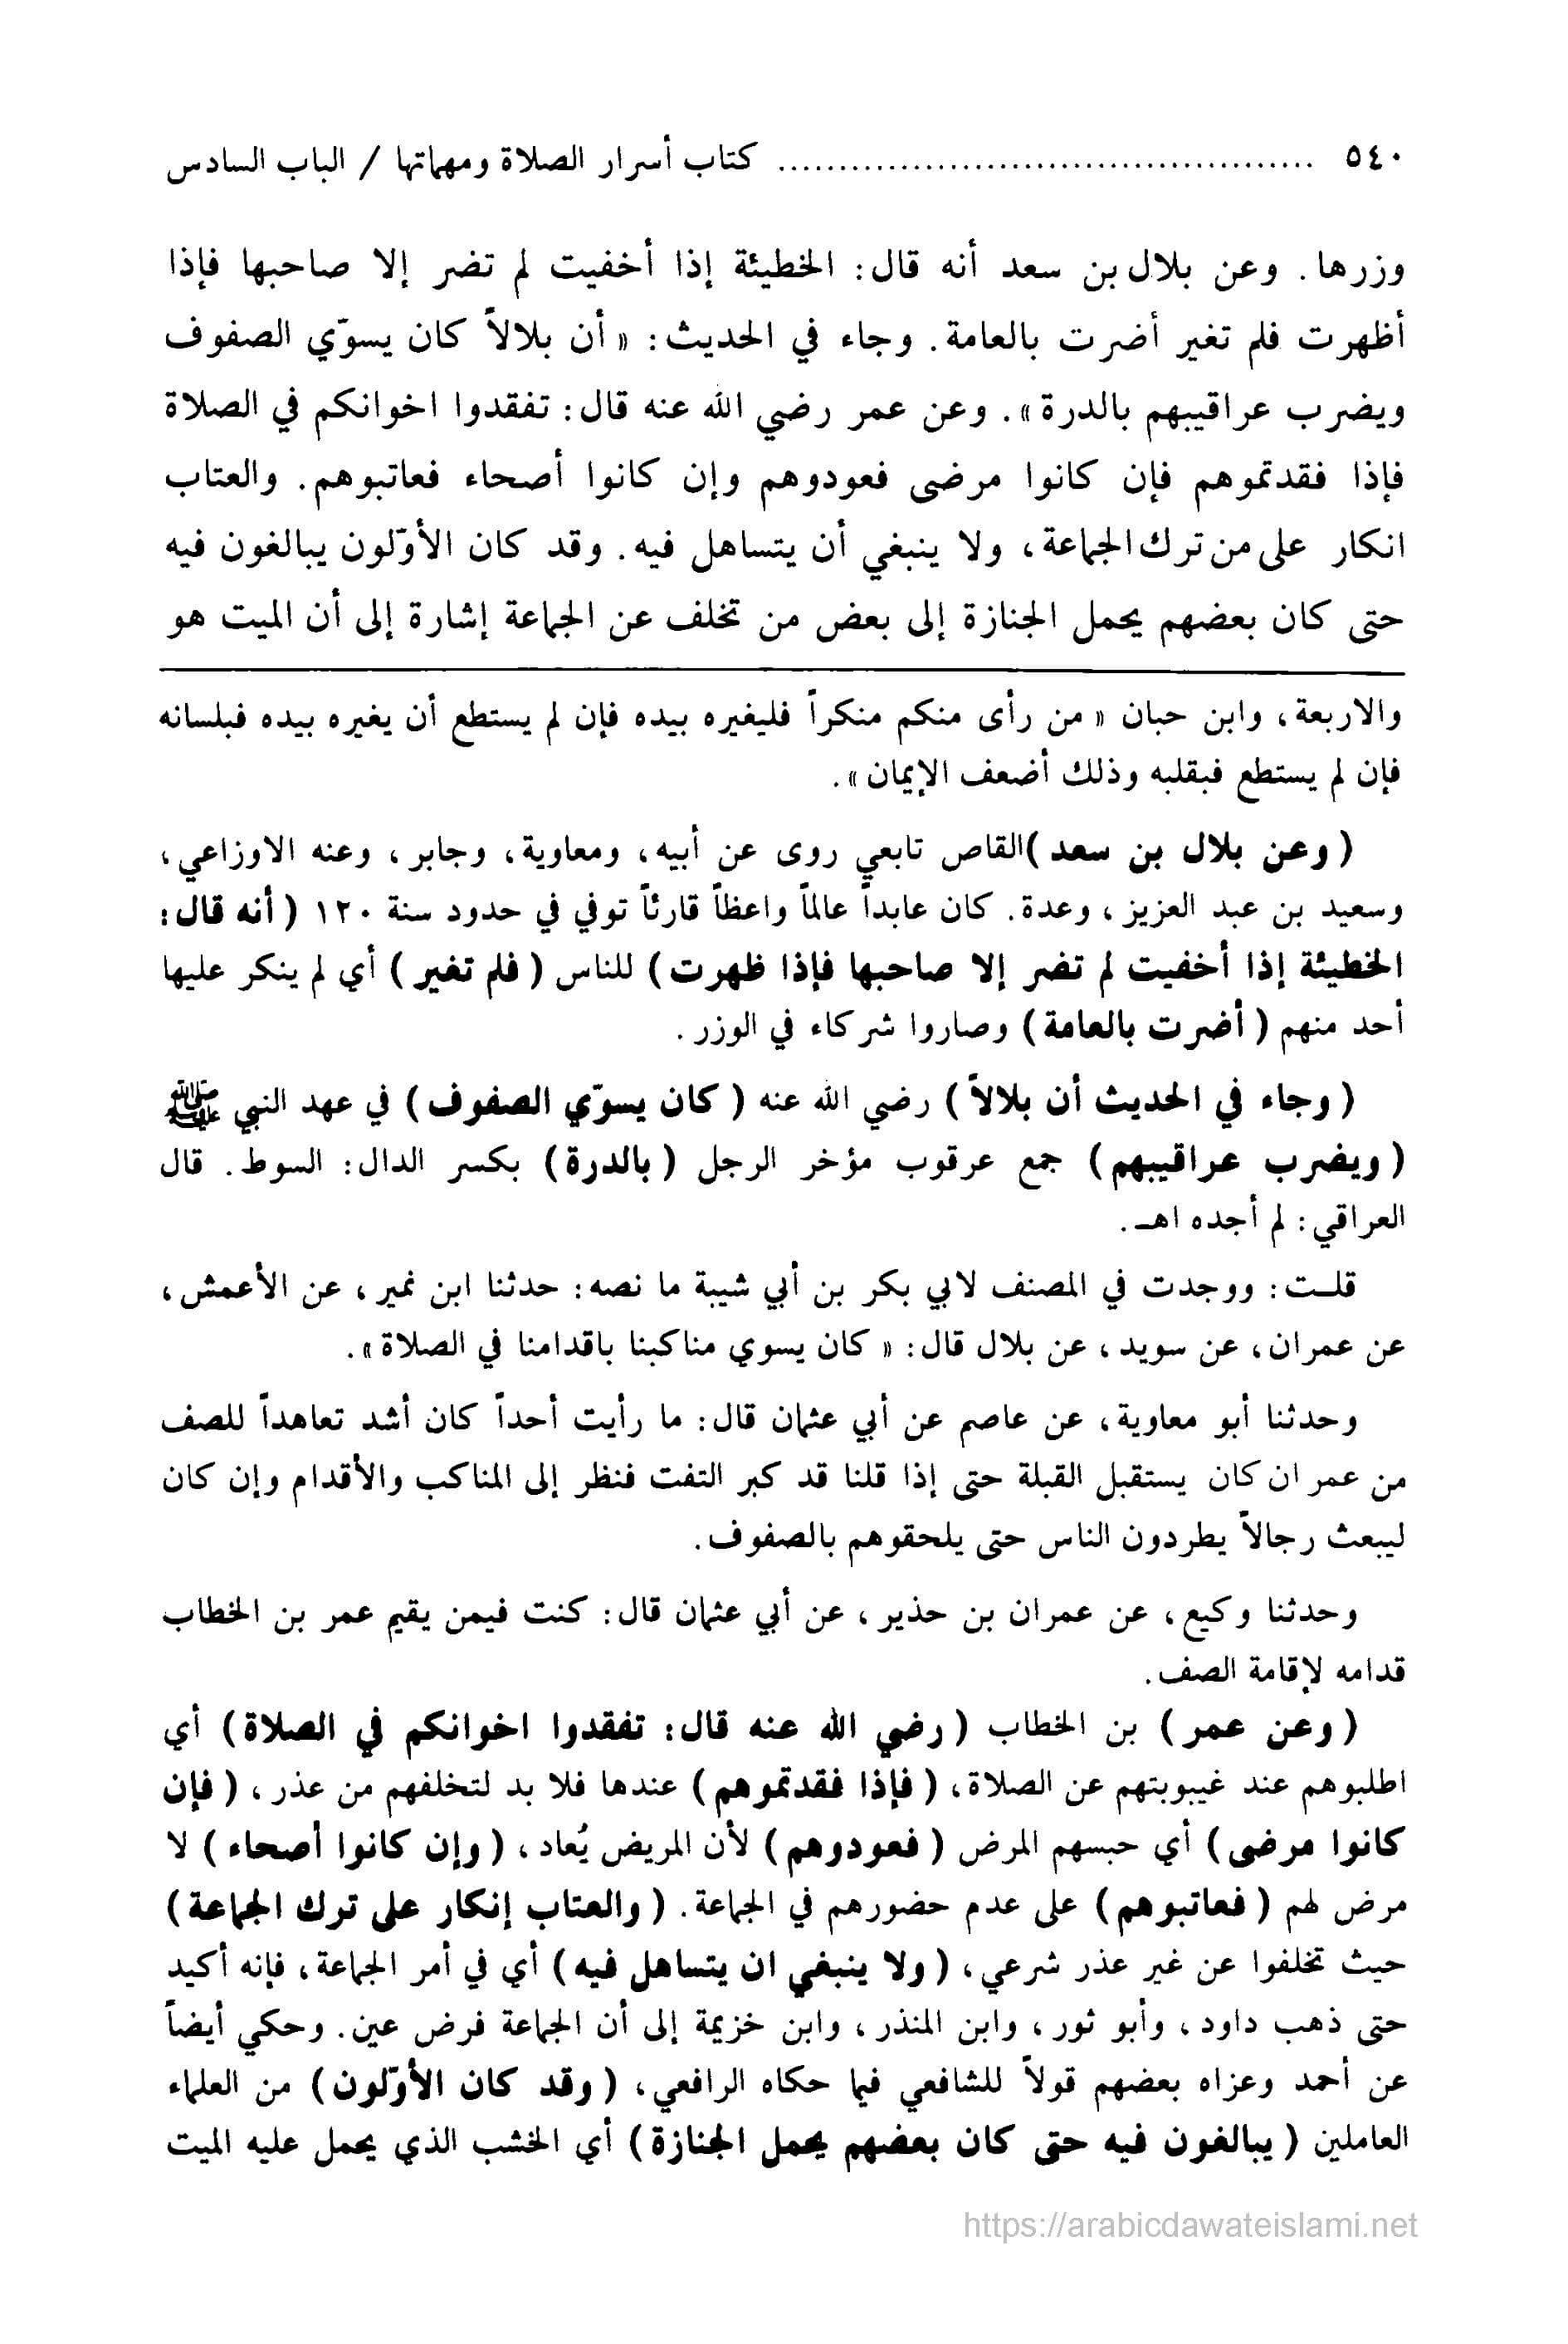 ٥٤٠ ............................................ كتاب أسرار الصلاة ومهماتها / الباب السادس
وزرها. وعن بلال بن سعد أنه قال: الخطيئة إذا أخفيت لم تضر إلا صاحبها فإذا
أظهرت فلم تغير أضرت بالعامة. وجاء في الحديث: « أن بلالاً كان يسوّي الصفوف
ويضرب عراقيبهم بالدرة ». وعن عمر رضي الله عنه قال: تفقدوا اخوانكم في الصلاة
فإذا فقدتموهم فإن كانوا مرضى فعودوهم وإن كانوا أصحاء فعاتبوهم. والعتاب
انكار على من ترك الجماعة، ولا ينبغي أن يتساهل فيه. وقد كان الأوّلون يبالغون فيه
حتى كان بعضهم يحمل الجنازة إلى بعض من تخلف عن الجماعة إشارة إلى أن الميت هو
والاربعة، وابن حبان « من رأى منكم منكراً فليغيره بيده فإن لم يستطع أن يغيره بيده فبلسانه
فإن لم يستطع فبقلبه وذلك أضعف الإيمان ».
( وعن بلال بن سعد )القاص تابعي روى عن أبيه، ومعاوية، وجابر، وعنه الاوزاعي،
وسعيد بن عبد العزيز، وعدة. كان عابداً عالماً واعظاً قارئاً توفي في حدود سنة ١٢٠ ( أنه قال:
الخطيئة إذا أخفيت لم تضر إلا صاحبها فإذا ظهرت ) للناس ( فلم تغير ) أي لم ينكر عليها
أحد منهم ( أضرت بالعامة ) وصاروا شركاء في الوزر.
( وجاء في الحديث أن بلالاً ) رضي الله عنه ( كان يسوّي الصفوف ) في عهد النبي ﷺ
( ويضرب عراقيبهم ) جمع عرقوب مؤخر الرجل ( بالدرة ) بكسر الدال: السوط. قال
العراقي: لم أجده اهـ.
قلـت: ووجدت في المصنف لابي بكر بن أبي شيبة ما نصه: حدثنا ابن نمير، عن الأعمش،
عن عمران، عن سويد، عن بلال قال: « كان يسوي مناكبنا باقدامنا في الصلاة ».
وحدثنا أبو معاوية، عن عاصم عن أبي عثمان قال: ما رأيت أحداً كان أشد تعاهداً للصف
من عمر ان كان يستقبل القبلة حتى إذا قلنا قد كبر التفت فنظر إلى المناكب والأقدام وإن كان
ليبعث رجالاً يطردون الناس حتى يلحقوهم بالصفوف.
وحدثنا وكيع، عن عمران بن حذير، عن أبي عثمان قال: كنت فيمن يقيم عمر بن الخطاب
قدامه لإقامة الصف.
( وعن عمر ) بن الخطاب ( رضي الله عنه قال: تفقدوا اخوانكم في الصلاة ) أي
اطلبوهم عند غيبوبتهم عن الصلاة، ( فإذا فقدتموهم ) عندها فلا بد لتخلفهم من عذر، ( فإن
كانوا مرضى ) أي حبسهم المرض ( فعودوهم ) لأن المريض يُعاد، ( وإن كانوا أصحاء ) لا
مرض لهم ( فعاتبوهم ) على عدم حضورهم في الجماعة. ( والعتاب إنكار على ترك الجماعة )
حيث تخلفوا عن غير عذر شرعي، ( ولا ينبغي ان يتساهل فيه ) أي في أمر الجماعة، فإنه أكيد
حتى ذهب داود، وأبو ثور، وابن المنذر، وابن خزيمة إلى أن الجماعة فرض عين. وحكي أيضاً
عن أحمد وعزاه بعضهم قولاً للشافعي فيما حكاه الرافعي، ( وقد كان الأوّلون ) من العلماء
العاملين ( يبالغون فيه حتى كان بعضهم يحمل الجنازة ) أي الخشب الذي يحمل عليه الميت
https://arabicdawateislami.net